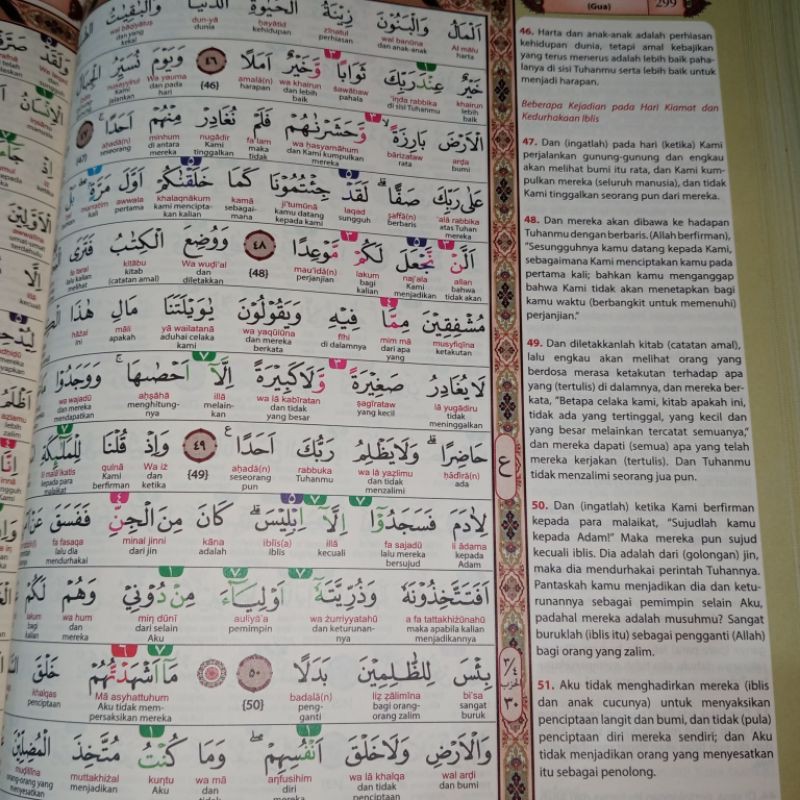 (Gua)
299
اَلْمَالُ وَالْبَنُوْنَ زِيْنَةُ الْحَيٰوةِ الدُّنْيَا وَالْبٰقِيٰتُ
Al mālu wal banūna zīnatul ḥayātid dun-yā wal bāqiyātuṣ
harta dan anak-anak perhiasan kehidupan dunia dan yang kekal
خَيْرٌ عِنْدَ رَبِّكَ ثَوَابًا وَّخَيْرٌ اَمَلًا ٤٦ وَيَوْمَ نُسَيِّرُ الْجِبَالَ
khairun 'inda rabbika ṡawābaw wa khairun amalā(n) {46} Wa yauma nusayyirul
lebih baik di sisi Tuhanmu pahala dan lebih baik harapan dan pada hari Kami jalankan
الْاَرْضَ بَارِزَةً وَّحَشَرْنٰهُمْ فَلَمْ نُغَادِرْ مِنْهُمْ اَحَدًا ٤٧
arḍa bārizataw wa ḥasyarnāhum fa lam nugādir minhum aḥadā(n) {47}
bumi rata dan Kami kumpulkan mereka maka tidak Kami tinggalkan di antara mereka seorang
عَلٰى رَبِّكَ صَفًّا لَقَدْ جِئْتُمُوْنَا كَمَا خَلَقْنٰكُمْ اَوَّلَ مَرَّةٍ بَلْ
'alā rabbika ṣaffā(n) laqad ji'tumūnā kamā khalaqnākum awwala marratim bal
atas Tuhan mereka berbaris sungguh kamu datang kepada Kami sebagaimana Kami menciptakan kalian pertama kali
اَلَّنْ نَّجْعَلَ لَكُمْ مَّوْعِدًا ٤٨ وَوُضِعَ الْكِتٰبُ فَتَرَى
allan naj'ala lakum mau'idā(n) {48} Wa wuḍi'al kitābu fa taral
bahwa tidak akan Kami menjadikan bagi kalian perjanjian dan diletakkan kitab (catatan amal) lalu kalian melihat
مُشْفِقِيْنَ مِمَّا فِيْهِ وَيَقُوْلُوْنَ يٰوَيْلَتَنَا مَالِ هٰذَا
musyfiqīna mim mā fīhi wa yaqūlūna yā wailatanā māli hāżal
ketakutan dari apa yang di dalamnya dan mereka berkata aduhai celaka kami apakah ini
لَا يُغَادِرُ صَغِيْرَةً وَّلَا كَبِيْرَةً اِلَّآ اَحْصٰىهَا وَوَجَدُوْا
lā yugādiru ṣagīrataw wa lā kabīratan illā aḥṣāhā wa wajadū
tidak meninggalkan yang kecil dan tidak yang besar melainkan menghitungnya dan mereka mendapatkan
حَاضِرًا وَلَا يَظْلِمُ رَبُّكَ اَحَدًا ٤٩ وَاِذْ قُلْنَا لِلْمَلٰۤىِٕكَةِ
ḥāḍirā(n) wa lā yaẓlimu rabbuka aḥadā(n) {49} Wa iż qulnā lil malā'ikatis
ada dan tidak menzalimi Tuhanmu seseorang pun dan ketika Kami berfirman kepada para malaikat
لِاٰدَمَ فَسَجَدُوْٓا اِلَّآ اِبْلِيْسَ كَانَ مِنَ الْجِنِّ فَفَسَقَ عَنْ
li ādama fa sajadū illā iblīs(a) kāna minal jinni fa fasaqa
kepada Adam lalu mereka bersujud kecuali Iblis adalah dari jin lalu dia mendurhakai
اَفَتَتَّخِذُوْنَهٗ وَذُرِّيَّتَهٗٓ اَوْلِيَاۤءَ مِنْ دُوْنِيْ وَهُمْ لَكُمْ
a fa tattakhiżūnahū wa żurriyyatahū auliyā'a min dūnī wa hum lakum
maka apabila kalian menjadikannya dan keturunannya pemimpin dari selain Aku dan mereka bagi kalian
بِئْسَ لِلظّٰلِمِيْنَ بَدَلًا ٥٠ مَآ اَشْهَدْتُّهُمْ خَلْقَ
bi'sa liẓ ẓālimīna badalā(n) {50} Mā asyhattuhum khalqas
sangat buruk bagi orang-orang zalim pengganti Aku tidak mempersaksikan mereka penciptaan
وَالْاَرْضِ وَلَا خَلْقَ اَنْفُسِهِمْ وَمَا كُنْتُ مُتَّخِذَ الْمُضِلِّيْنَ
wal arḍi wa lā khalqa anfusihim wa mā kuntu muttakhiżal muḍillīna
dan bumi dan tidak penciptaan diri mereka dan tidak Aku menjadikan orang-orang yang menyesatkan
46. Harta dan anak-anak adalah perhiasan
kehidupan dunia, tetapi amal kebajikan
yang terus menerus adalah lebih baik paha-
lanya di sisi Tuhanmu serta lebih baik untuk
menjadi harapan.
Beberapa Kejadian pada Hari Kiamat dan
Kedurhakaan Iblis
47. Dan (ingatlah) pada hari (ketika) Kami
perjalankan gunung-gunung dan engkau
akan melihat bumi itu rata, dan Kami kum-
pulkan mereka (seluruh manusia), dan tidak
Kami tinggalkan seorang pun dari mereka.
48. Dan mereka akan dibawa ke hadapan
Tuhanmu dengan berbaris. (Allah berfirman),
"Sesungguhnya kamu datang kepada Kami,
sebagaimana Kami menciptakan kamu pada
pertama kali; bahkan kamu menganggap
bahwa Kami tidak akan menetapkan bagi
kamu waktu (berbangkit untuk memenuhi)
perjanjian."
49. Dan diletakkanlah kitab (catatan amal),
lalu engkau akan melihat orang yang
berdosa merasa ketakutan terhadap apa
yang (tertulis) di dalamnya, dan mereka ber-
kata, "Betapa celaka kami, kitab apakah ini,
tidak ada yang tertinggal, yang kecil dan
yang besar melainkan tercatat semuanya,"
dan mereka dapati (semua) apa yang telah
mereka kerjakan (tertulis). Dan Tuhanmu
tidak menzalimi seorang jua pun.
50. Dan (ingatlah) ketika Kami berfirman
kepada para malaikat, "Sujudlah kamu
kepada Adam!" Maka mereka pun sujud
kecuali iblis. Dia adalah dari (golongan) jin,
maka dia mendurhakai perintah Tuhannya.
Pantaskah kamu menjadikan dia dan ketu-
runannya sebagai pemimpin selain Aku,
padahal mereka adalah musuhmu? Sangat
buruklah (iblis itu) sebagai pengganti (Allah)
bagi orang yang zalim.
51. Aku tidak menghadirkan mereka (iblis
dan anak cucunya) untuk menyaksikan
penciptaan langit dan bumi, dan tidak (pula)
penciptaan diri mereka sendiri; dan Aku
tidak menjadikan orang yang menyesatkan
itu sebagai penolong.